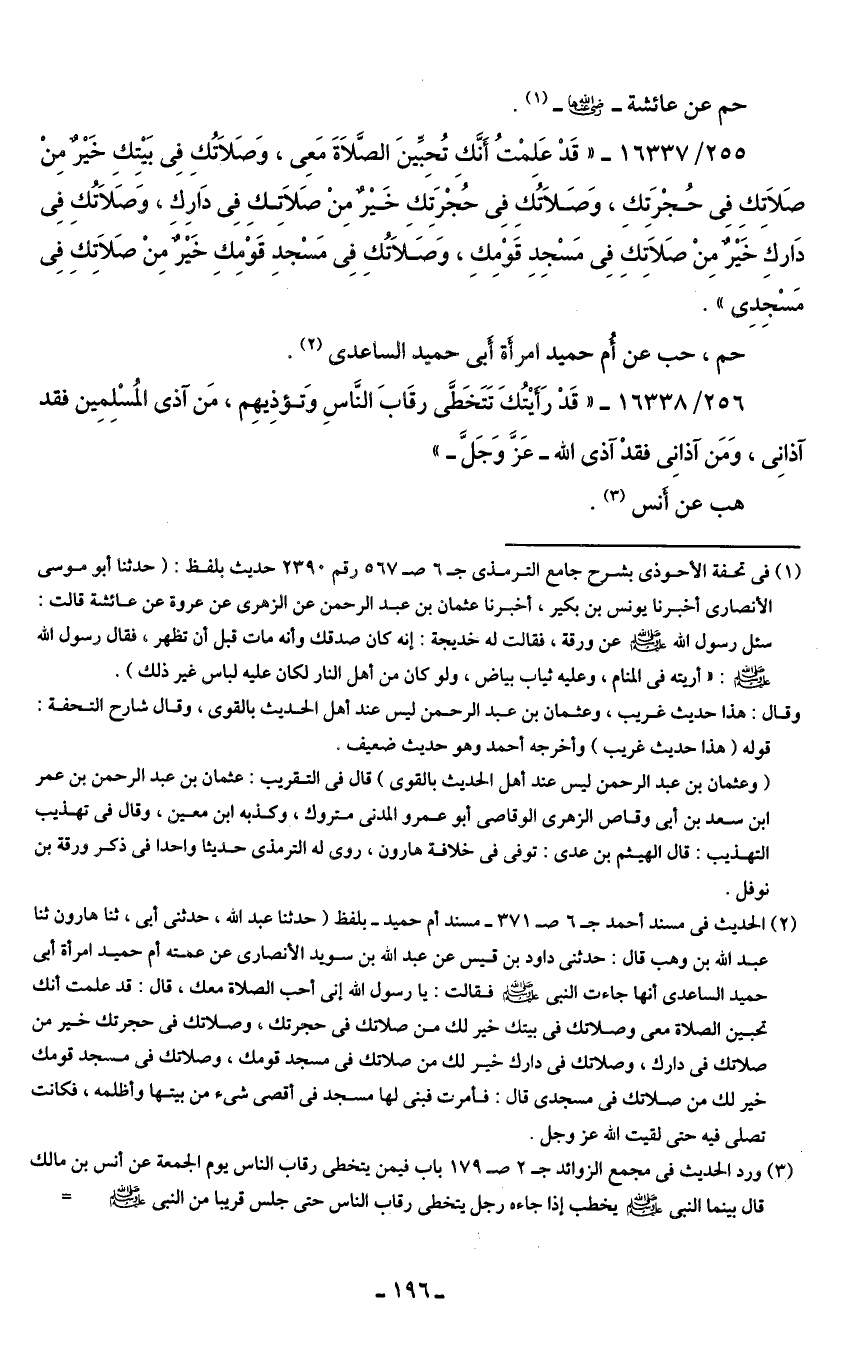 حم عن عائشة ـ رضي الله عنها ـ (١) .
٢٥٥/ ١٦٣٣٧ ـ « قَدْ عَلِمْتُ أَنَّكِ تُحِبِّينَ الصَّلاَةَ مَعِى ، وَصَلاَتُكِ فِى بَيْتِكِ خَيْرٌ مِنْ
صَلاَتِكِ فِى حُجْرَتِكِ ، وَصَلاَتُكِ فِى حُجْرَتِكِ خَيْرٌ مِنْ صَلاَتِكِ فِى دَارِكِ ، وَصَلاَتُكِ فِى
دَارِكِ خَيْرٌ مِنْ صَلاَتِكِ فِى مَسْجِدِ قَوْمِكِ ، وَصَلاَتُكِ فِى مَسْجِدِ قَوْمِكِ خَيْرٌ مِنْ صَلاَتِكِ فِى
مَسْجِدِى » .
حم ، حب عن أُم حميد امرأَة أَبى حميد الساعدى (٢) .
٢٥٦/ ١٦٣٣٨ ـ « قَدْ رَأَيْتُكَ تَتَخَطَّى رِقَابَ النَّاسِ وَتُؤذِيهِم ، مَن آذى المُسْلِمِين فقد
آذَانِى ، وَمَن آذانِى فقدْ آذى الله ـ عَزَّ وَجَلَّ ـ »
هب عن أَنس (٣) .
(١) فى تحفة الأحوذى بشرح جامع الترمذى جـ ٦ صـ ٥٦٧ رقم ٢٣٩٠ حديث بلفظ : ( حدثنا أبو موسى
الأنصارى أخبرنا يونس بن بكير ، أخبرنا عثمان بن عبد الرحمن عن الزهرى عن عروة عن عائشة قالت :
سئل رسول الله ﷺ عن ورقة ، فقالت له خديجة : إنه كان صدقك وأنه مات قبل أن تظهر ، فقال رسول الله
ﷺ : « أريته فى المنام ، وعليه ثياب بياض ، ولو كان من أهل النار لكان عليه لباس غير ذلك ) .
وقال : هذا حديث غريب ، وعثمان بن عبد الرحمن ليس عند أهل الحديث بالقوى ، وقال شارح التحفة :
قوله ( هذا حديث غريب ) وأخرجه أحمد وهو حديث ضعيف .
( وعثمان بن عبد الرحمن ليس عند أهل الحديث بالقوى ) قال فى التقريب : عثمان بن عبد الرحمن بن عمر
ابن سعد بن أبى وقاص الزهرى الوقاصى أبو عمرو المدنى متروك ، وكذبه ابن معين ، وقال فى تهذيب
التهذيب : قال الهيثم بن عدى : توفى فى خلافة هارون ، روى له الترمذى حديثا واحدا فى ذكر ورقة بن
نوفل .
(٢) الحديث فى مسند أحمد جـ ٦ صـ ٣٧١ ـ مسند أم حميد ـ بلفظ ( حدثنا عبد الله ، حدثنى أبى ، ثنا هارون ثنا
عبد الله بن وهب قال : حدثنى داود بن قيس عن عبد الله بن سويد الأنصارى عن عمته أم حميد امرأة أبى
حميد الساعدى أنها جاءت النبى ﷺ فقالت : يا رسول الله إنى أحب الصلاة معك ، قال : قد علمت أنك
تحبين الصلاة معى وصلاتك فى بيتك خير لك من صلاتك فى حجرتك ، وصلاتك فى حجرتك خير من
صلاتك فى دارك ، وصلاتك فى دارك خير لك من صلاتك فى مسجد قومك ، وصلاتك فى مسجد قومك
خير لك من صلاتك فى مسجدى قال : فأمرت فبنى لها مسجد فى أقصى شىء من بيتها وأظلمه ، فكانت
تصلى فيه حتى لقيت الله عز وجل .
(٣) ورد الحديث فى مجمع الزوائد جـ ٢ صـ ١٧٩ باب فيمن يتخطى رقاب الناس يوم الجمعة عن أنس بن مالك
قال بينما النبى ﷺ يخطب إذا جاءه رجل يتخطى رقاب الناس حتى جلس قريبا من النبى ﷺ =
ـ ١٩٦ ـ